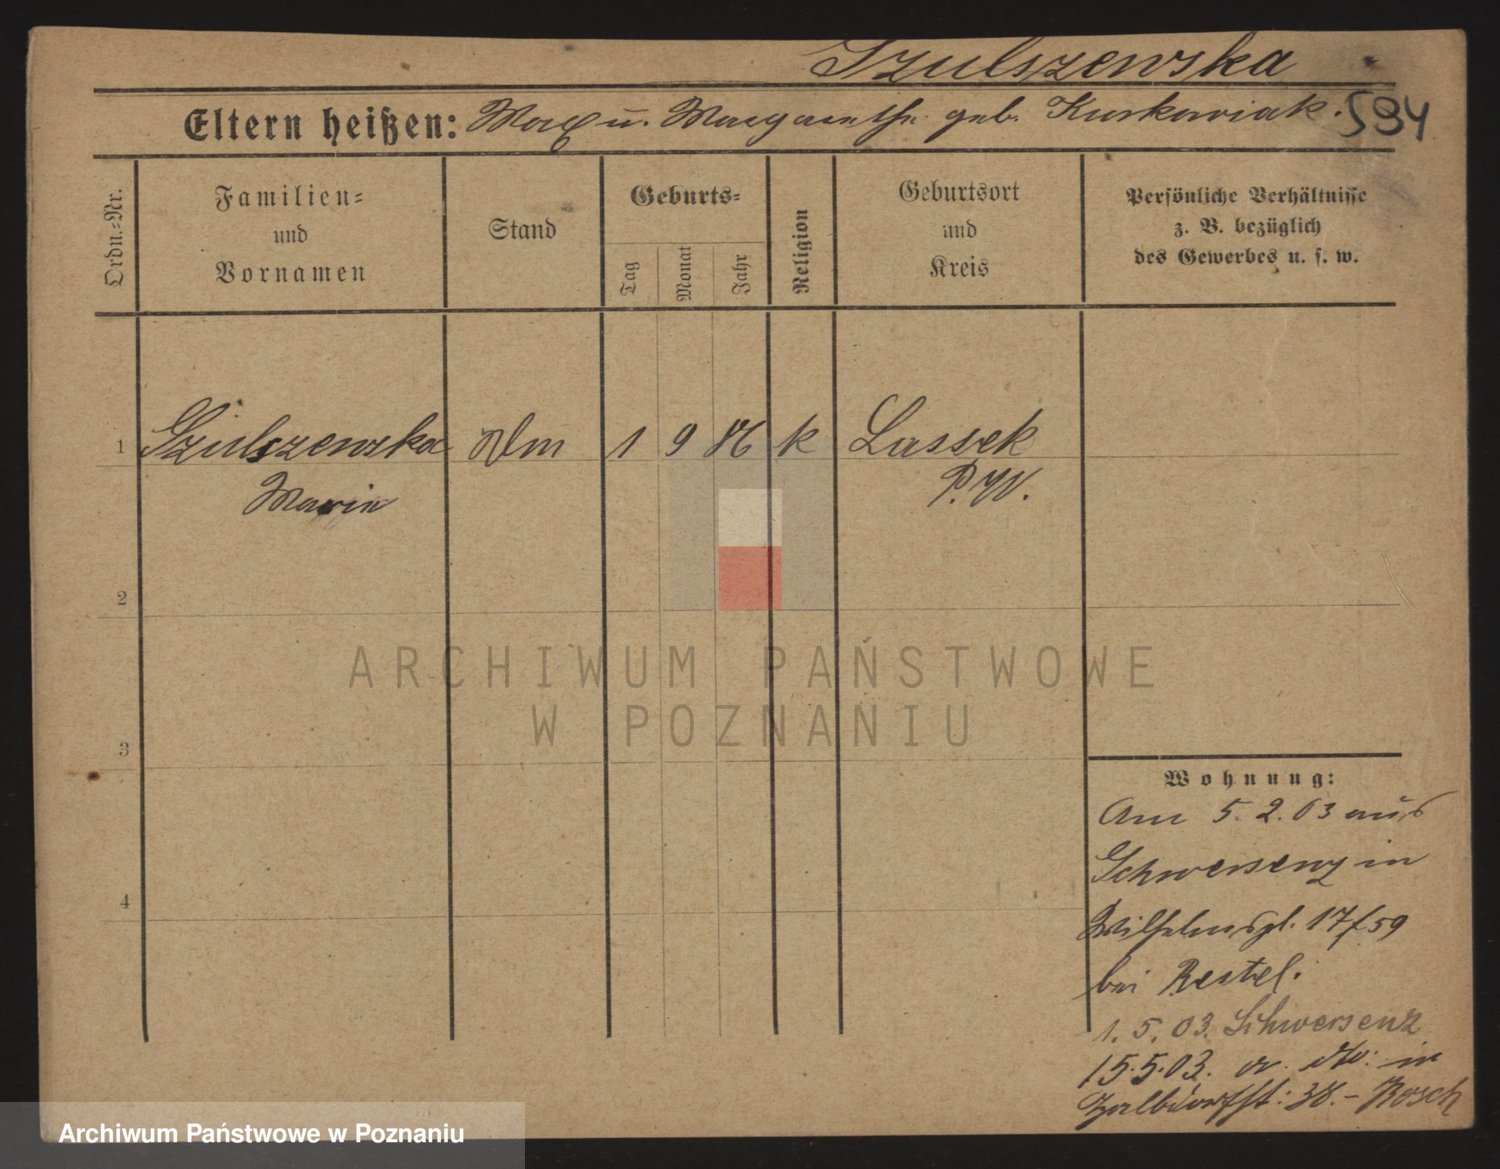 Szulszewska
Eltern heißen: Max u. Margarethe geb. Kurkowiak.
594
Ordn.-Nr.
Familien-
und
Vornamen
Stand
Geburts-
Tag
Monat
Jahr
Religion
Geburtsort
und
Kreis
Persönliche Verhältnisse
z. B. bezüglich
des Gewerbes u. s. w.
1 Szulszewska Dm 1 9 86 k Lassek
Marie P. W.
2
3
4
Wohnung:
Am 5. 2. 03 aus
Schwersenz in
Wilhelmspl. 17 / 59
bei Restel.
1. 5. 03. Schwersenz
15.5.03. a. dto: in
38. - Rosch
ARCHIWUM PAŃSTWOWE
W POZNANIU
Archiwum Państwowe w Poznaniu